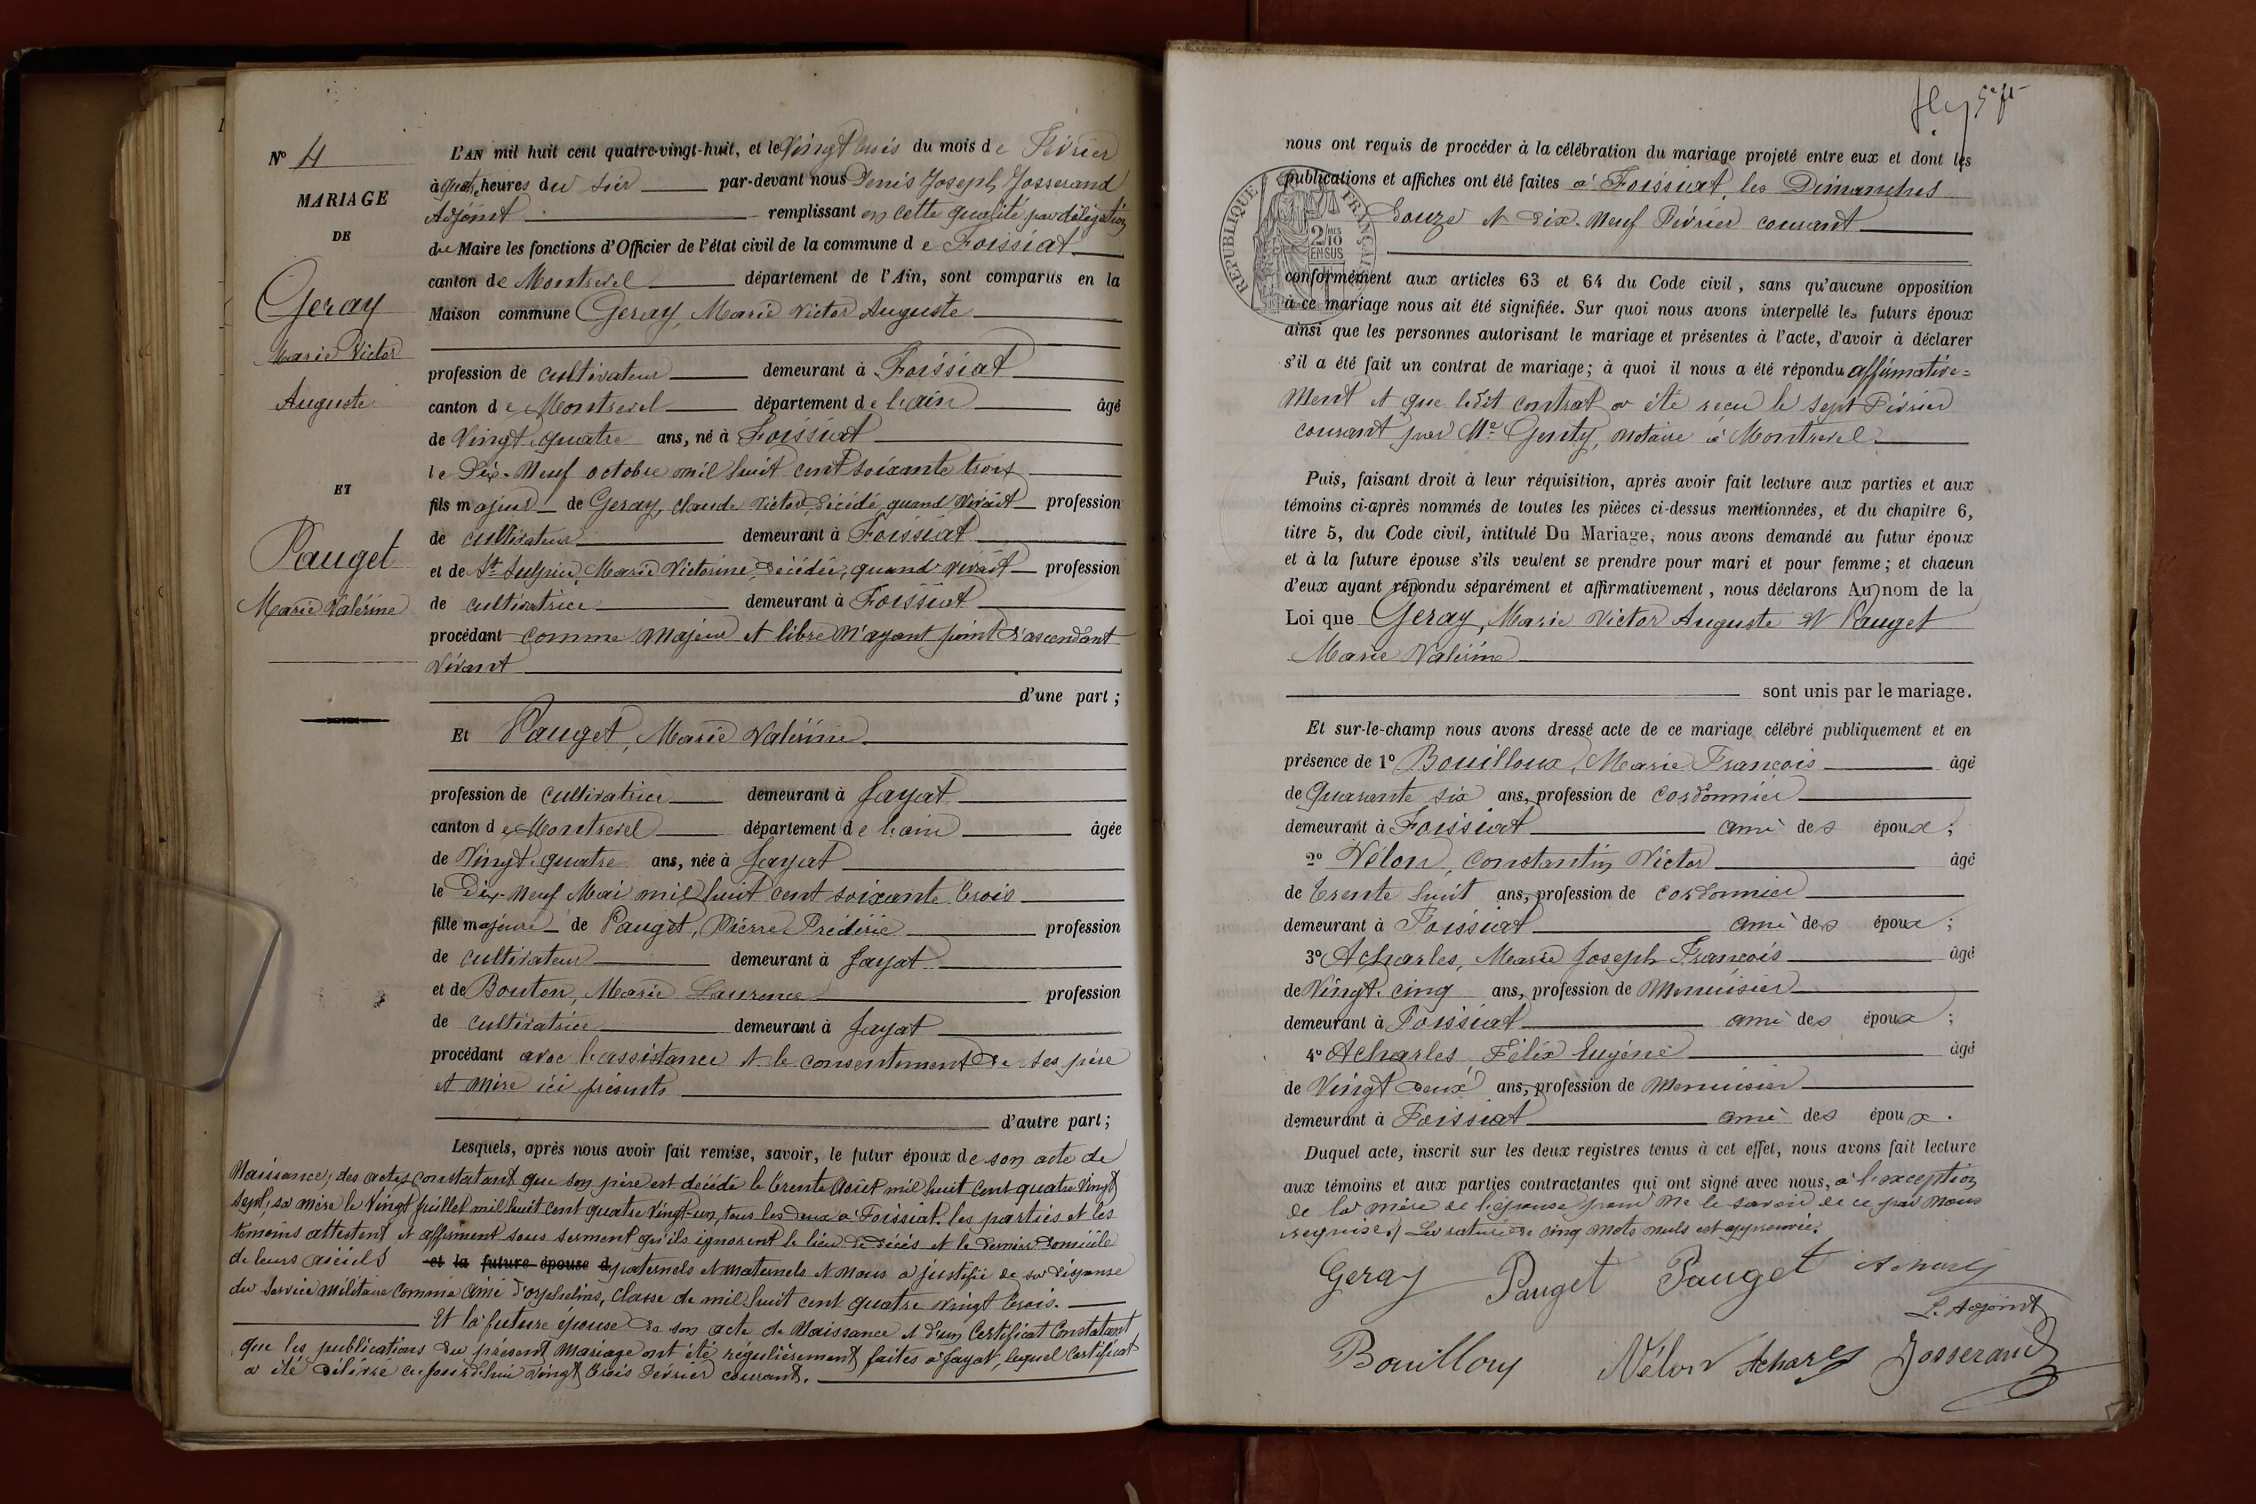 Nº 4
MARIAGE
DE
Geray
Marie Victor
Auguste
ET
Pauget
Marie Valérine
L'AN mil huit cent quatre-vingt-huit, et le Vingt trois du mois de Février
à quatre heures du soir par-devant nous Denis Joseph Josserand
Adjoint remplissant en cette qualité par délégation
du Maire les fonctions d'Officier de l'état civil de la commune de Foissiat
canton de Montrevel département de l'Ain, sont comparus en la
Maison commune Geray, Marie Victor Auguste
profession de cultivateur demeurant à Foissiat
canton de Montrevel département de l'ain âgé
de Vingt quatre ans, né à Foissiat
le Dix-Neuf octobre mil huit cent soixante trois
fils majeur de Geray, Claude Victor, décédé, quand vivait profession
de cultivateur demeurant à Foissiat
et de St Sulpice, Marie Victorine, décédée, quand vivait profession
de cultivatrice demeurant à Foissiat
procédant comme majeur et libre n'ayant point d'ascendant
vivant
d'une part ;
Et Pauget, Marie Valérine
profession de cultivatrice demeurant à Jayat
canton de Montrevel département de l'ain âgée
de Vingt-quatre ans, née à Jayat
le Dix-Neuf Mai mil huit cent soixante trois
fille majeure de Pauget, Pierre Frédéric profession
de cultivateur demeurant à Jayat
et de Bouton, Marie Laurence profession
de cultivatrice demeurant à Jayat
procédant avec l'assistance et le consentement de ses père
et mère ici présents
d'autre part ;
Lesquels, après nous avoir fait remise, savoir, le futur époux de son acte de
Naissance, des actes constatant que son père est décédé le trente août mil huit cent quatre vingt
sept, sa mère le Vingt juillet mil huit cent quatre vingt-un, tous les deux à Foissiat. les parties et les
témoins attestent et affirment sous serment qu'ils ignorent le lieu de décès et le dernier domicile
de leurs aïeuls et la future épouse d paternels et maternels et nous a justifié de sa dispense
du service militaire comme aîné d'orphelins, classe de mil huit cent quatre vingt trois.
Et la future épouse de son acte de Naissance et d'un Certificat Constatant
que les publications du présent Mariage ont été régulièrement faites à Jayat, lequel Certificat
a été délivré ce jourd'hui vingt trois Février courant.
nous ont requis de procéder à la célébration du mariage projeté entre eux et dont les
publications et affiches ont été faites à Foissiat, les Dimanches
Douze et Dix-Neuf Février courant
RÉPUBLIQUE FRANÇAISE
2/10
EN SUS
conformément aux articles 63 et 64 du Code civil, sans qu'aucune opposition
à ce mariage nous ait été signifiée. Sur quoi nous avons interpellé les futurs époux
ainsi que les personnes autorisant le mariage et présentes à l'acte, d'avoir à déclarer
s'il a été fait un contrat de mariage ; à quoi il nous a été répondu affirmative=
ment et que ledit contrat a été reçu le sept Février
courant par Me Genty, notaire à Montrevel
Puis, faisant droit à leur réquisition, après avoir fait lecture aux parties et aux
témoins ci-après nommés de toutes les pièces ci-dessus mentionnées, et du chapitre 6,
titre 5, du Code civil, intitulé Du Mariage, nous avons demandé au futur époux
et à la future épouse s'ils veulent se prendre pour mari et pour femme ; et chacun
d'eux ayant répondu séparément et affirmativement, nous déclarons Au nom de la
Loi que Geray, Marie Victor Auguste et Pauget
Marie Valérine
sont unis par le mariage.
Et sur-le-champ nous avons dressé acte de ce mariage célébré publiquement et en
présence de 1º Bouilloux, Marie François âgé
de Quarante six ans, profession de cordonnier
demeurant à Foissiat ami des époux ;
2º Vélon, Constantin Victor âgé
de trente huit ans, profession de cordonnier
demeurant à Foissiat ami des époux ;
3º Acharles, Marie Joseph François âgé
de Vingt-cinq ans, profession de Menuisier
demeurant à Foissiat ami des époux ;
4º Acharles, Félix Eugène âgé
de Vingt deux ans, profession de Menuisier
demeurant à Foissiat ami des époux.
Duquel acte, inscrit sur les deux registres tenus à cet effet, nous avons fait lecture
aux témoins et aux parties contractantes qui ont signé avec nous, à l'exception
de la mère de l'épouse pour ne le savoir de ce par nous
requise./ La rature de cinq mots nuls est approuvée.
Geray Pauget Pauget
L'Adjoint
Bouilloux Vélon Acharles Josserand